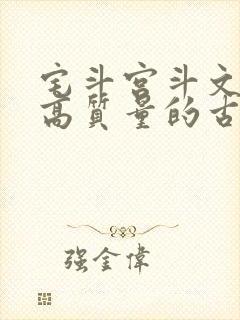 宅斗宫斗文
高质量的古
强金伟